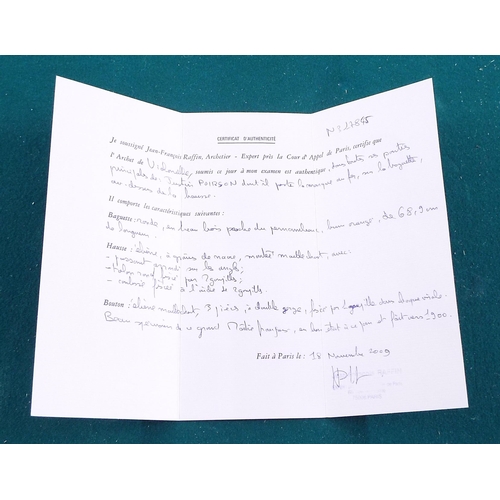 N° 17845
CERTIFICAT D'AUTHENTICITÉ
Je soussigné Jean-François Raffin, Archetier - Expert près la Cour d'Appel de Paris, certifie que
l'Archet de Violoncelle, soumis ce jour à mon examen est authentique, dans toutes ses parties
principales de Justin POIRSON dont il porte la marque au fer, sur la baguette,
au-dessus de la hausse.
Il comporte les caractéristiques suivantes :
Baguette: ronde, en beau bois proche du pernambouc, brun orangé, de 68,9 cm
de longueur.
Hausse: ébène, à grains de nacre, montée maillechort, avec:
- passant sur les angles;
- talon fixé par 2 goupilles;
- coulisse fixée à l'aide de 2 goupilles.
Bouton: ébène maillechort, 3 pièces, à double gorge, fixée par 1 goupille dans chaque virole.
Beau spécimen de ce grand Maître français, en bon état à ce jour et fait vers 1900.
Fait à Paris le: 18 Novembre 2009